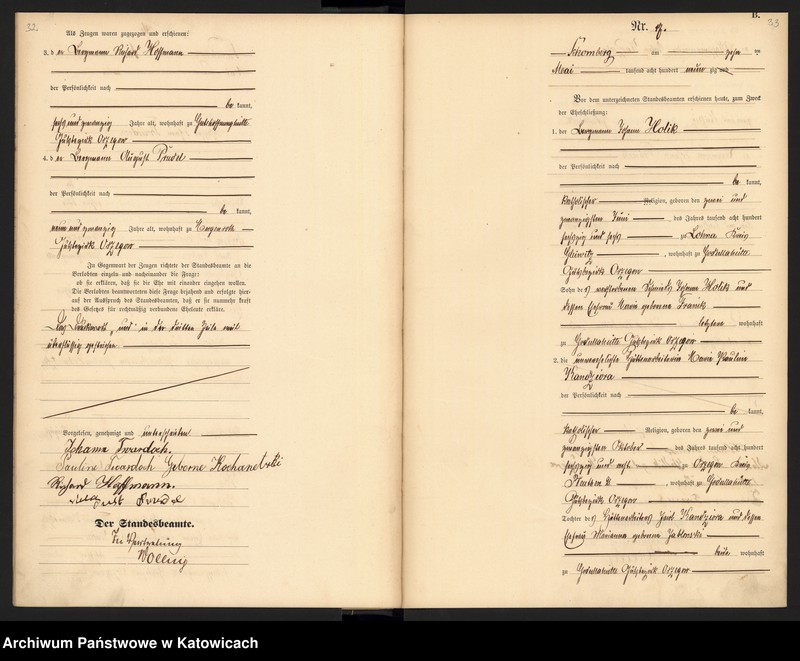 32
Als Zeugen waren zugezogen und erschienen:
3. der Bergmann Richard Hoffmann
der Persönlichkeit nach
be kannt,
sechs und zwanzig Jahre alt, wohnhaft zu Gutehoffnungshütte
Gutsbezirk Orzegow
4. der Bergmann August Prudel
der Persönlichkeit nach
be kannt,
neun und zwanzig Jahre alt, wohnhaft zu Morgenroth
Gutsbezirk Orzegow
In Gegenwart der Zeugen richtete der Standesbeamte an die
Verlobten einzeln und nacheinander die Frage:
ob sie erklären, daß sie die Ehe mit einander eingehen wollen.
Die Verlobten beantworteten diese Frage bejahend und erfolgte hier-
auf der Ausspruch des Standesbeamten, daß er sie nunmehr kraft
des Gesetzes für rechtmäßig verbundene Eheleute erkläre.
Das Druckwort "und" in der dritten Zeile weil
überflüssig gestrichen
Vorgelesen, genehmigt und unterschrieben
Johann Twardoch.
Pauline Twardoch geborne Kochanetzki
Richard Hoffmann.
August Prudel
Der Standesbeamte.
In Vertretung
B.
33
Nr. 17.
Schomberg am zehn ten
Mai tausend acht hundert neun zig und
Vor dem unterzeichneten Standesbeamten erschienen heute, zum Zweck
der Eheschließung:
1. der Bergmann Johann Holik
der Persönlichkeit nach
be kannt,
katholischer Religion, geboren den zwei und
zwanzigsten Juni des Jahres tausend acht hundert
sechszig und sechs zu Lohnia Kreis
Gleiwitz, wohnhaft zu Godullahütte
Gutsbezirk Orzegow
Sohn des verstorbenen Johann Holik und
dessen Ehefrau Maria geborene Franik
letztere wohnhaft
zu Godullahütte Gutsbezirk Orzegow
2. die unverehelichte Hüttenarbeiterin Maria Paulina
Kandziora
der Persönlichkeit nach
be kannt,
katholischer Religion, geboren den zwei und
zwanzigsten Oktober des Jahres tausend acht hundert
sechszig und acht zu Orzegow Kreis
Beuthen, wohnhaft zu Godullahütte
Gutsbezirk Orzegow
Tochter des Hüttenarbeiters Jacob Kandziora und dessen
Ehefrau Marianna geborene Jablonski
beide wohnhaft
zu Godullahütte Gutsbezirk Orzegow
Archiwum Państwowe w Katowicach